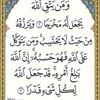 وَمَن يَتَّقِ ٱللَّهَ
يَجْعَل لَّهُۥ مَخْرَجًا ۝ وَيَرْزُقْهُ
مِنْ حَيْثُ لَا يَحْتَسِبُ وَمَن يَتَوَكَّلْ
عَلَى ٱللَّهِ فَهُوَ حَسْبُهُۥٓ إِنَّ ٱللَّهَ
بَٰلِغُ أَمْرِهِۦ قَدْ جَعَلَ ٱللَّهُ
لِكُلِّ شَىْءٍ قَدْرًا ۝